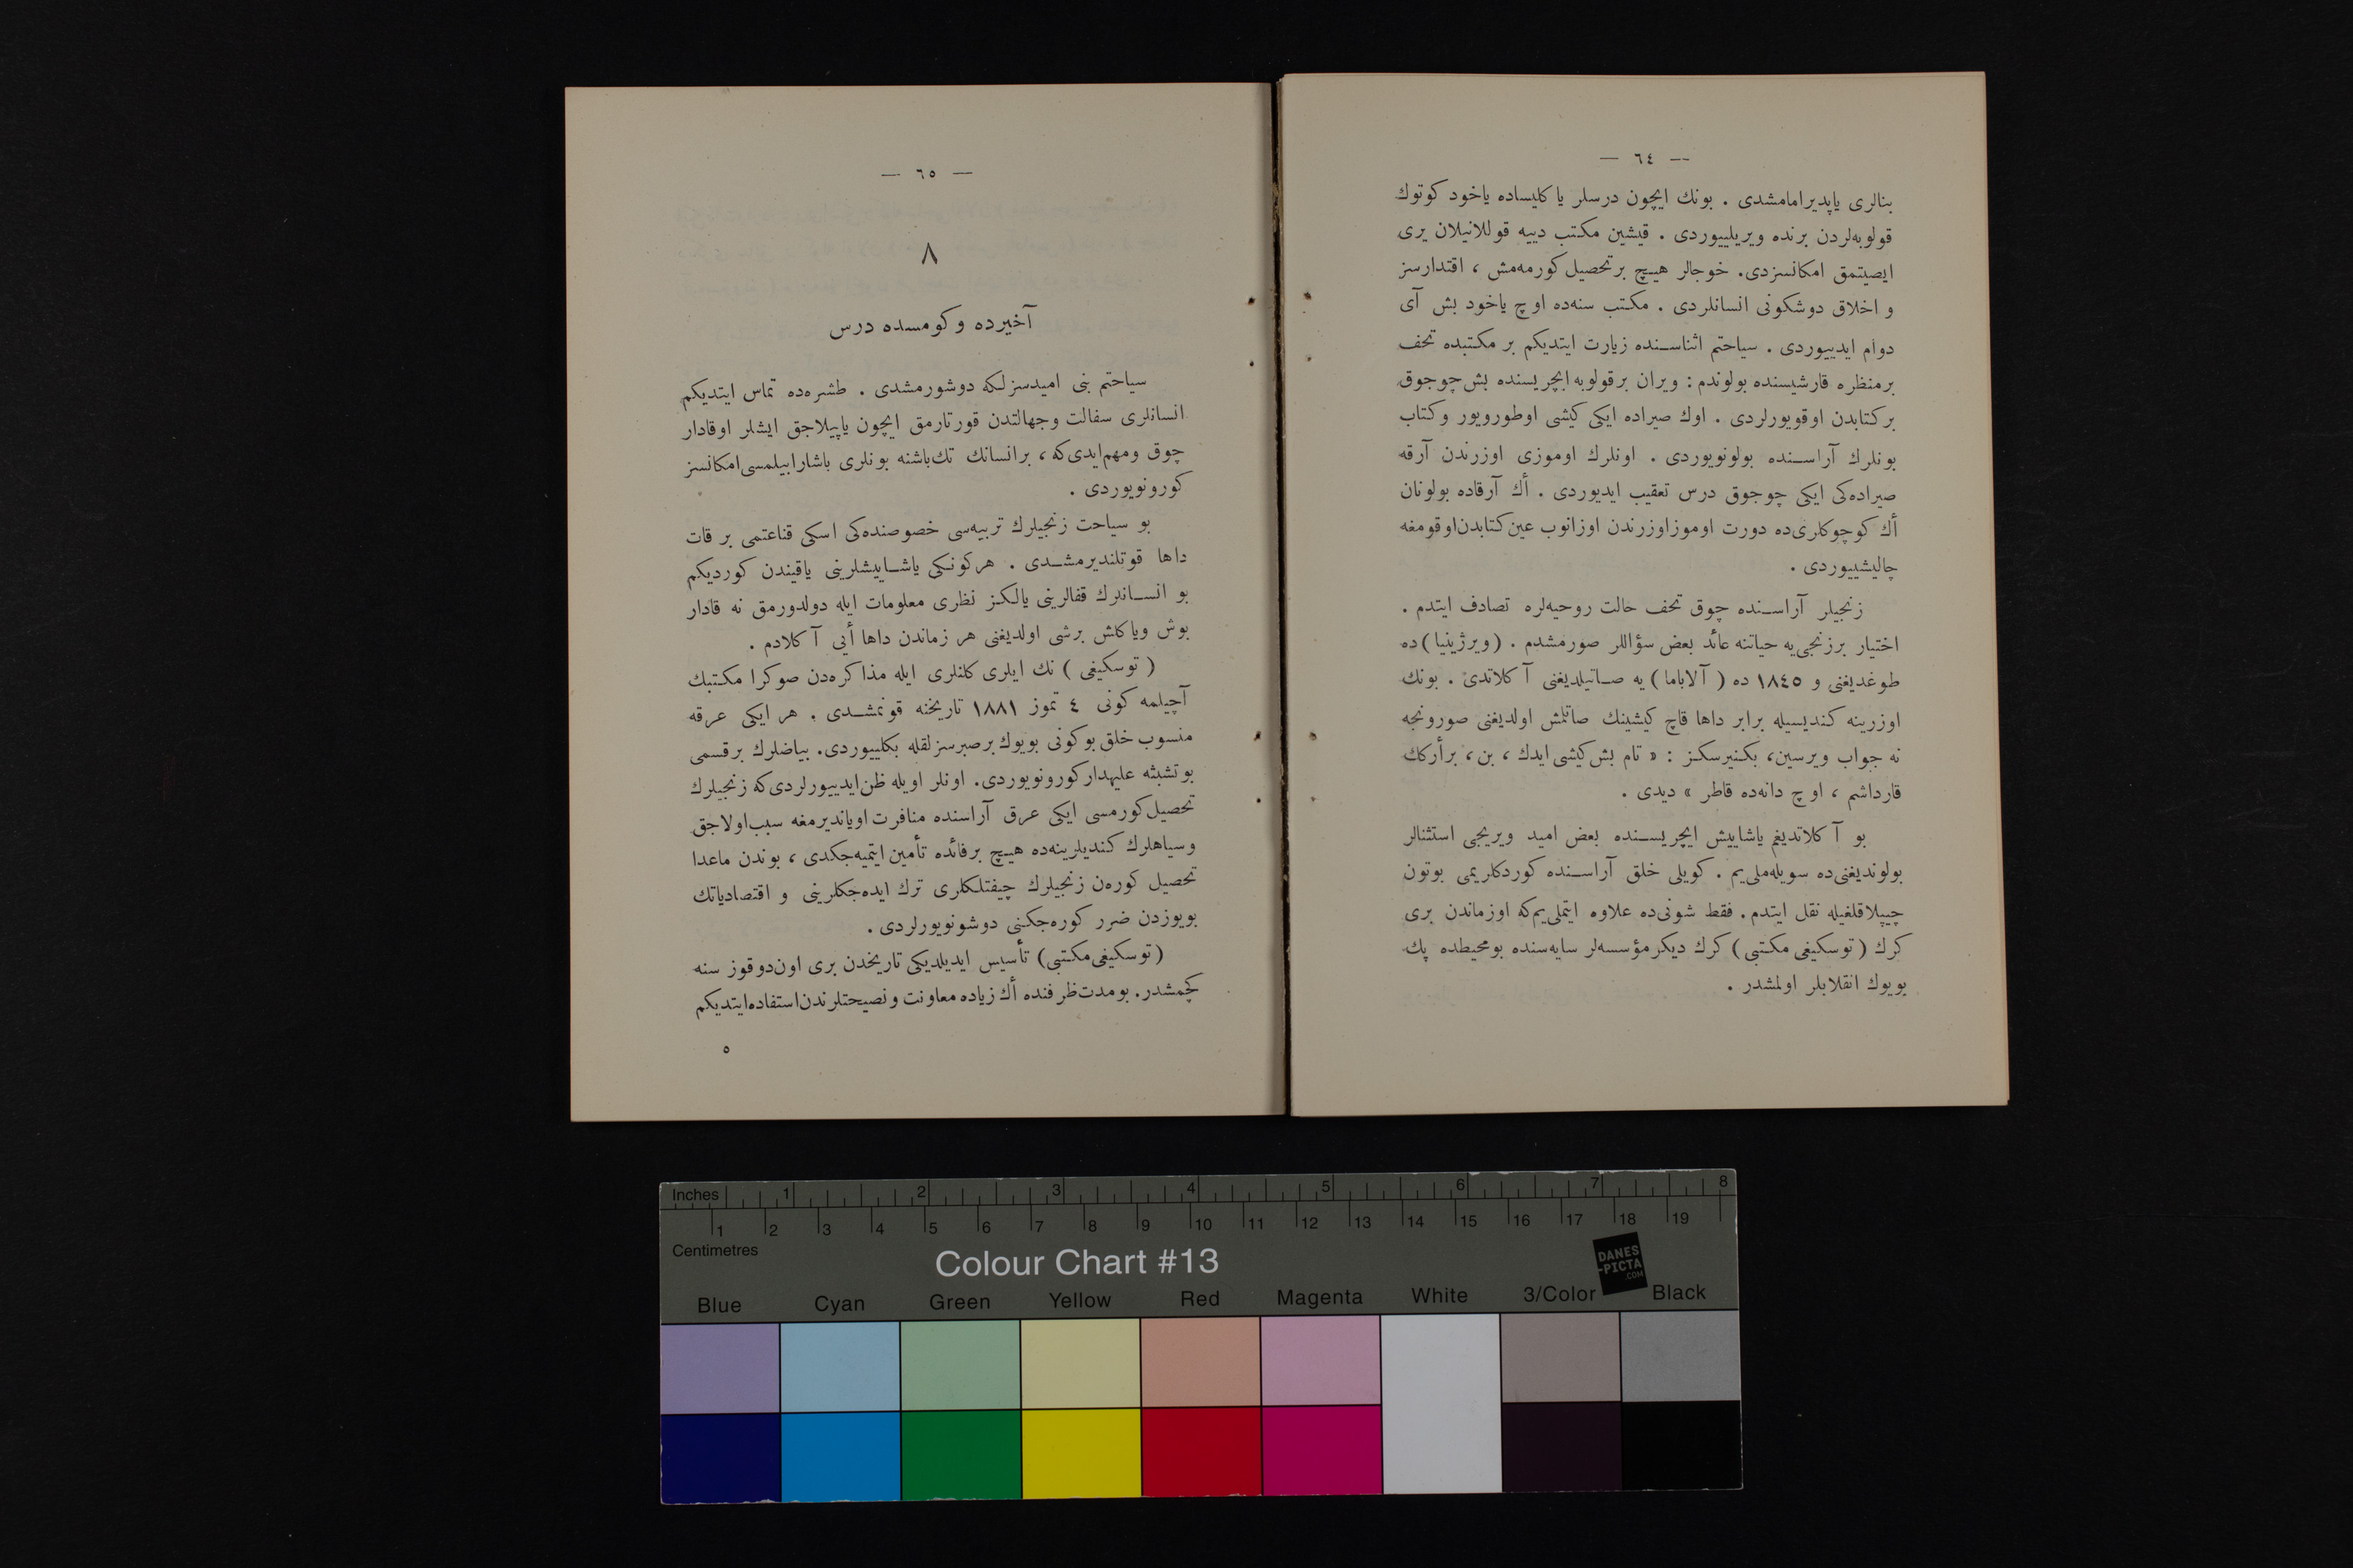 — ٦٤ —
بنالری یاپدیرامامشدی . بونك ایچون درسلر یا كلیساده یاخود كوتوك
قولوبه‌لردن برنده ویریلییوردی . قیشین مكتب دییه قوللانیلان یری
ایصیتمق امكانسزدی. خوجالر هیچ برتحصیل كورمه‌مش ، اقتدارسز
و اخلاق دوشكونی انسانلردی . مكتب سنه‌ده اوچ یاخود بش آی
دوام ایدییوردی . سیاحتم اثناسنده زیارت ایتدیكم بر مكتبده تحف
برمنظره قارشیسنده بولوندم : ویران برقولوبه ایچریسنده بش چوجوق
بركتابدن اوقویورلردی . اوك صیراده ایكی كیشی اوطورویور وكتاب
بونلرك آراسنده بولونویوردی . اونلرك اوموزی اوزرندن آرقه
صیراده‌كی ایكی چوجوق درس تعقیب ایدیوردی . أك آرقاده بولونان
أك كوچوكلری‌ده دورت اوموزاوزرندن اوزانوب عین كتابدن اوقومغه
چالیشییوردی .
زنجیلر آراسنده چوق تحف حالت روحیه‌لره تصادف ایتدم .
اختیار برزنجی‌یه حیاتنه عائد بعض سؤاللر صورمشدم . (ویرژینیا) ده
طوغدیغنی و ١٨٤٥ ده ( آلاباما ) یه صاتیلدیغنی آكلاتدی . بونك
اوزرینه كندیسیله برابر داها قاچ كیشینك صاتلش اولدیغنی صورونجه
نه جواب ویرسین، بكنیرسكز : « تام بش كیشی ایدك ، بن ، برأركك
قارداشم ، اوچ دانه‌ده قاطر » دیدی .
بو آكلاتدیغم یاشاییش ایچریسنده بعض امید ویریجی استثنالر
بولوندیغنی‌ده سویله‌ملی‌یم . كویلی خلق آراسنده كوردكلریمی بوتون
چیپلاقلغیله نقل ایتدم . فقط شونی‌ده علاوه ایتملی‌یم‌كه اوزماندن بری
كرك (توسكیغی مكتبی) كرك دیكر مؤسسه‌لر سایه‌سنده بومحیطده پك
بویوك انقلابلر اولمشدر .
— ٦٥ —
٨
آخیرده وكومسده درس
سیاحتم بنی امیدسزلكه دوشورمشدی . طشره‌ده تماس ایتدیكم
انسانلری سفالت وجهالتدن قورتارمق ایچون یاپیلاجق ایشلر اوقادار
چوق ومهم‌ایدی‌كه ، برانسانك تك‌باشنه بونلری باشارابیلمسی امكانسز
كورونویوردی .
بو سیاحت زنجیلرك تربیه‌سی خصوصنده‌كی اسكی قناعتمی بر قات
داها قوتلندیرمشدی . هركونكی یاشاییشلرینی یاقیندن كوردیكم
بو انسانلرك قفالرینی یالكز نظری معلومات ایله دولدورمق نه قادار
بوش ویاكلش برشی اولدیغنی هر زماندن داها أیی آكلادم .
( توسكیغی ) نك ایلری كلنلری ایله مذاكره‌دن صوكرا مكتبك
آچیلمه كونی ٤ تموز ١٨٨١ تاریخنه قونمشدی . هر ایكی عرقه
منسوب خلق بوكونی بویوك برصبرسزلقله بكلییوردی. بیاضلرك برقسمی
بوتشبثه علیهدار كورونویوردی. اونلر اویله ظن‌ایدییورلردی‌كه زنجیلرك
تحصیل كورمسی ایكی عرق آراسنده منافرت اویاندیرمغه سبب‌اولاجق
وسیاهلرك كندیلرینه‌ده هیچ برفائده تأمین ایتمیه‌جكدی ، بوندن ماعدا
تحصیل كوره‌ن زنجیلرك چیفتلكلری ترك ایده‌جكلرینی و اقتصادیاتك
بویوزدن ضرر كوره‌جكنی دوشونویورلردی .
(توسكیغی مكتبی) تأسیس ایدیلدیكی تاریخدن بری اون‌دوقوز سنه
كچمشدر. بومدت‌ظرفنده أك زیاده معاونت ونصیحتلرندن استفاده ایتدیكم
٥
Inches 1 2 3 4 5 6 7 8
1 2 3 4 5 6 7 8 9 10 11 12 13 14 15 16 17 18 19
Centimetres
Colour Chart #13
DANES
-PICTA
.COM
Blue Cyan Green Yellow Red Magenta White 3/Color Black